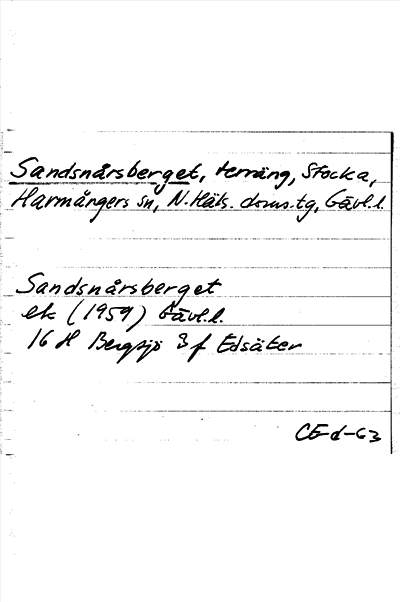 Sandsnårsberget, terräng, Stocka,
Harmångers sn, N. Häls. doms.tg, Gävl.l.
Sandsnårsberget
ek (1959) Gävl.l.
16 H Bergsjö 3 f Edsäter
CE-d-63